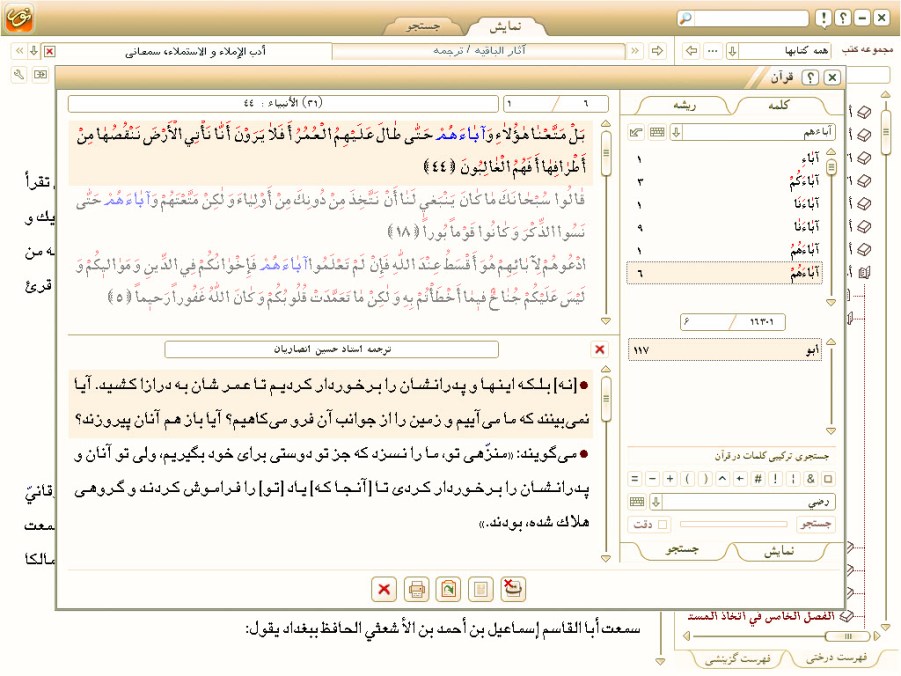 نمایش
جستجو
مجموعه کتب
همه کتابها
آثار الباقیه / ترجمه
أدب الإملاء و الاستملاء، سمعانی
قرآن
کلمه
ریشه
٦ / ١
(٣١) الأنبیاء : ٤٤
آباءهم
آبَاءِ ١
آبَاءَكُمْ ٣
آبَاءَنَا ١
آبَاءَنَا ٩
آبَاءَهُمُ ١
آبَاءَهُمْ ٦
بَلْ مَتَّعْنَا هٰؤُلاَءِ وَ آبَاءَهُمْ حَتَّى طَالَ عَلَيْهِمُ الْعُمُرُ أَ فَلاَ يَرَوْنَ أَنَّا نَأْتِي الْأَرْضَ نَنْقُصُهَا مِنْ
أَطْرَافِهَا أَ فَهُمُ الْغَالِبُونَ ﴿٤٤﴾
قَالُوا سُبْحَانَكَ مَا كَانَ يَنْبَغِي لَنَا أَنْ نَتَّخِذَ مِنْ دُونِكَ مِنْ أَوْلِيَاءَ وَ لٰكِنْ مَتَّعْتَهُمْ وَ آبَاءَهُمْ حَتَّى
نَسُوا الذِّكْرَ وَ كَانُوا قَوْماً بُوراً ﴿١٨﴾
ادْعُوهُمْ لِآبَائِهِمْ هُوَ أَقْسَطُ عِنْدَ اللَّهِ فَإِنْ لَمْ تَعْلَمُوا آبَاءَهُمْ فَإِخْوَانُكُمْ فِي الدِّينِ وَ مَوَالِيكُمْ وَ
لَيْسَ عَلَيْكُمْ جُنَاحٌ فِيمَا أَخْطَأْتُمْ بِهِ وَ لٰكِنْ مَا تَعَمَّدَتْ قُلُوبُكُمْ وَ كَانَ اللَّهُ غَفُوراً رَحِيماً ﴿٥﴾
١٦٣٠١ / ٦
أبو ١١٧
ترجمه استاد حسین انصاریان
[نه] بلکه اینها و پدرانشان را برخوردار کردیم تا عمر شان به درازا کشید. آیا
نمی‌بینند که ما می‌آییم و زمین را از جوانب آن فرو می‌کاهیم؟ آیا باز هم آنان پیروزند؟
می‌گویند: «منزّهی تو، ما را نسزد که جز تو دوستی برای خود بگیریم، ولی تو آنان و
پدرانشان را برخوردار کردی تا [آنجا که] یاد [تو] را فراموش کردند و گروهی
هلاك شده، بودند.»
جستجوی ترکیبی کلمات در قرآن
= − + ( ) ^ ← # ! ¦ &
رضي
جستجو
دقت
نمایش
جستجو
تقرأ
یك و
ه من
قرئ
سمعت
مالکا
سمعت أبا القاسم إسماعیل بن أحمد بن الأشعثي الحافظ ببغداد یقول:
الفصل الخامس في اتخاذ المست
فهرست درختی
فهرست گزینشی